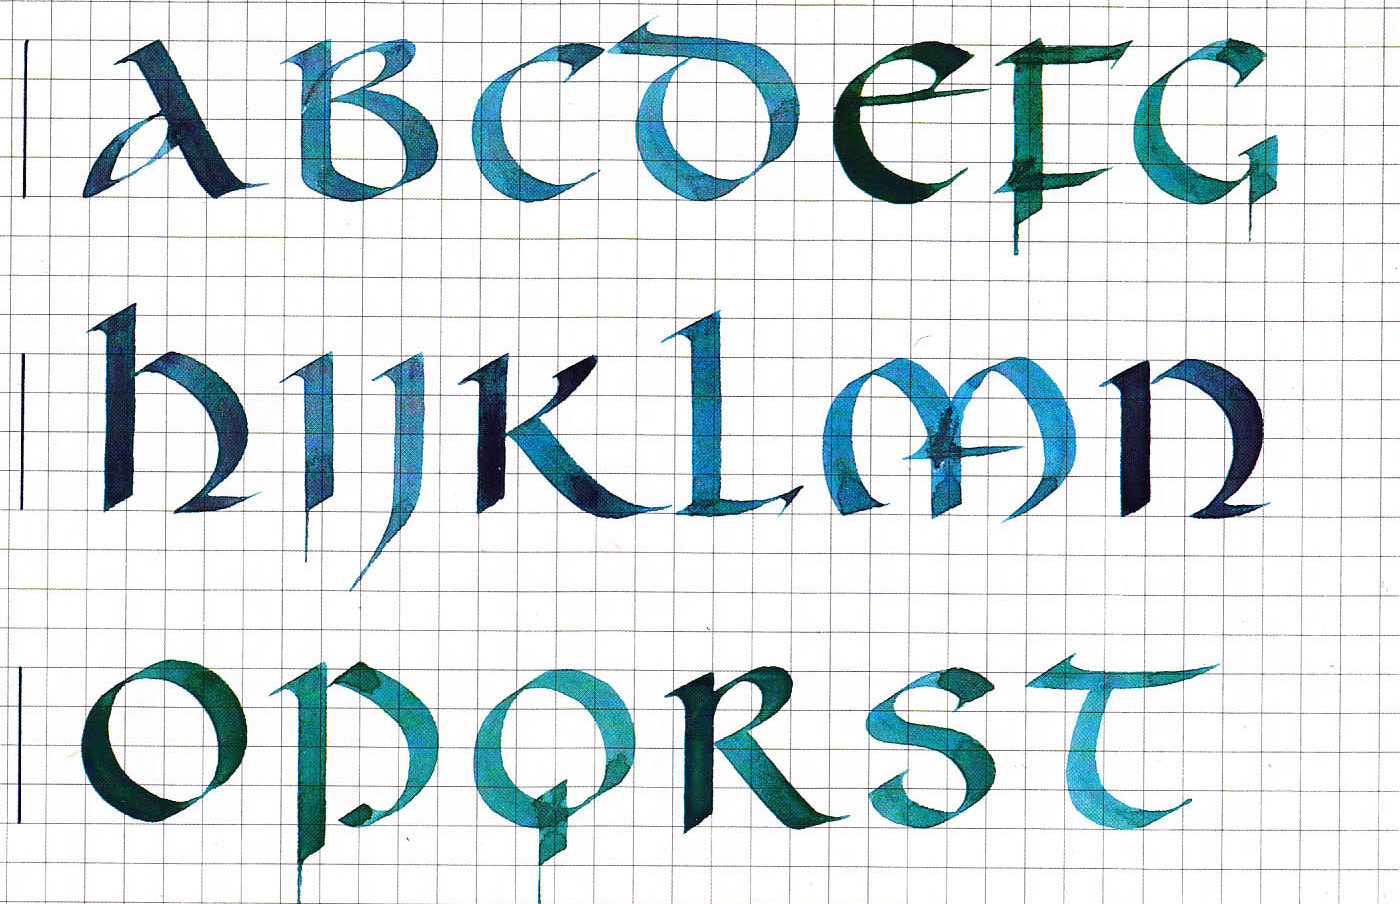 ABCDEFG
HIJKLMN
OPQRST